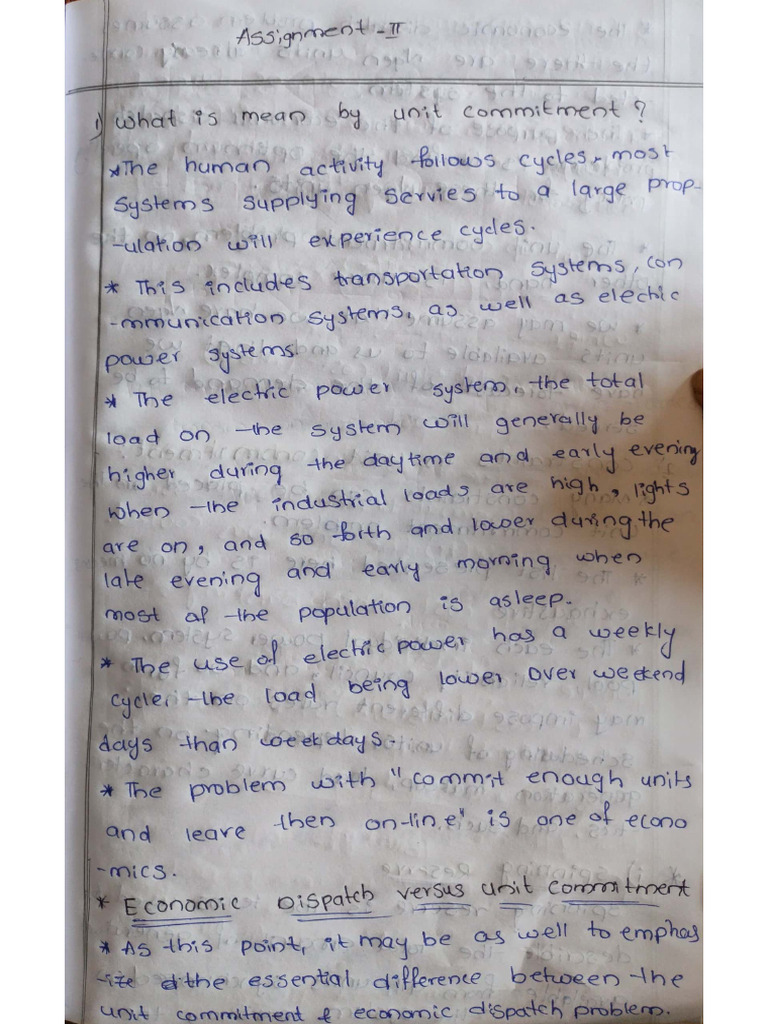 Assignment-II
1) What is mean by unit commitment ?
*The human activity follows cycles, most
systems supplying servies to a large prop-
-ulation will experience cycles.
* This includes transportation systems, con
-mmunication systems, as well as electric
power systems.
* The electric power system, the total
load on the system will generally be
higher during the daytime and early evening
when the industrial loads are high, lights
are on, and so forth and lower during the
late evening and early morning when
most of the population is asleep.
* The use of electric power has a weekly
cycle, the load being lower over weekend
days than weekdays.
* The problem with "commit enough units
and leave then on-line" is one of econo
-mics.
* Economic Dispatch versus unit commitment
* As this point, it may be as well to emphas
-ize dthe essential difference between the
unit commitment & economic dispatch problem.